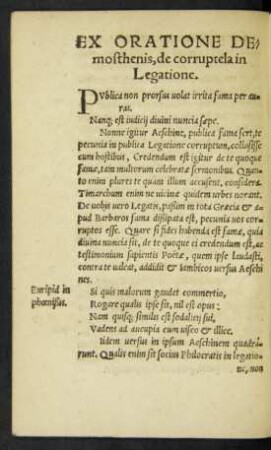 EX ORATIONE DE/
mosthenis, de corruptela in
Legatione.
PVblica non prorsus uolat irrita fama per auras.
Nanq; est iudicij diuini nuncia sæpe.
Nonne igitur Aeschine, publica fama fert, te
pecunia in publica Legatione corruptum, collusisse
cum hostibus, Credendum est igitur de te quoque
famæ, tam multorum celebratæ sermonibus. Quan-
to enim plures te quam illum accusent, considera.
Timarchum enim ne uicinæ quidem urbes norant.
De uobis uero Legatis, passim in tota Græcia & a-
pud Barbaros fama dissipata est, pecunia uos cor-
ruptos esse. Quare si fides habenda est famæ, quia
diuina nuncia sit, de te quoque ei credendum est, ac
testimonium sapientis Poëtæ, quem ipse laudasti,
contra te ualeat, addidit & Iambicos uersus Aeschi-
nes.
Euripid in
phœnissas.
Si quis malorum gaudet commertio,
Rogare qualis ipse sit, nil est opus:
Nam quisq; similis est sodalitij sui,
Vadens ad aucupia cum uisco & illice.
Iidem uersus in ipsum Aeschinem quadra-
runt. Qualis enim sit socius Philocratis in legatio-
ne, non